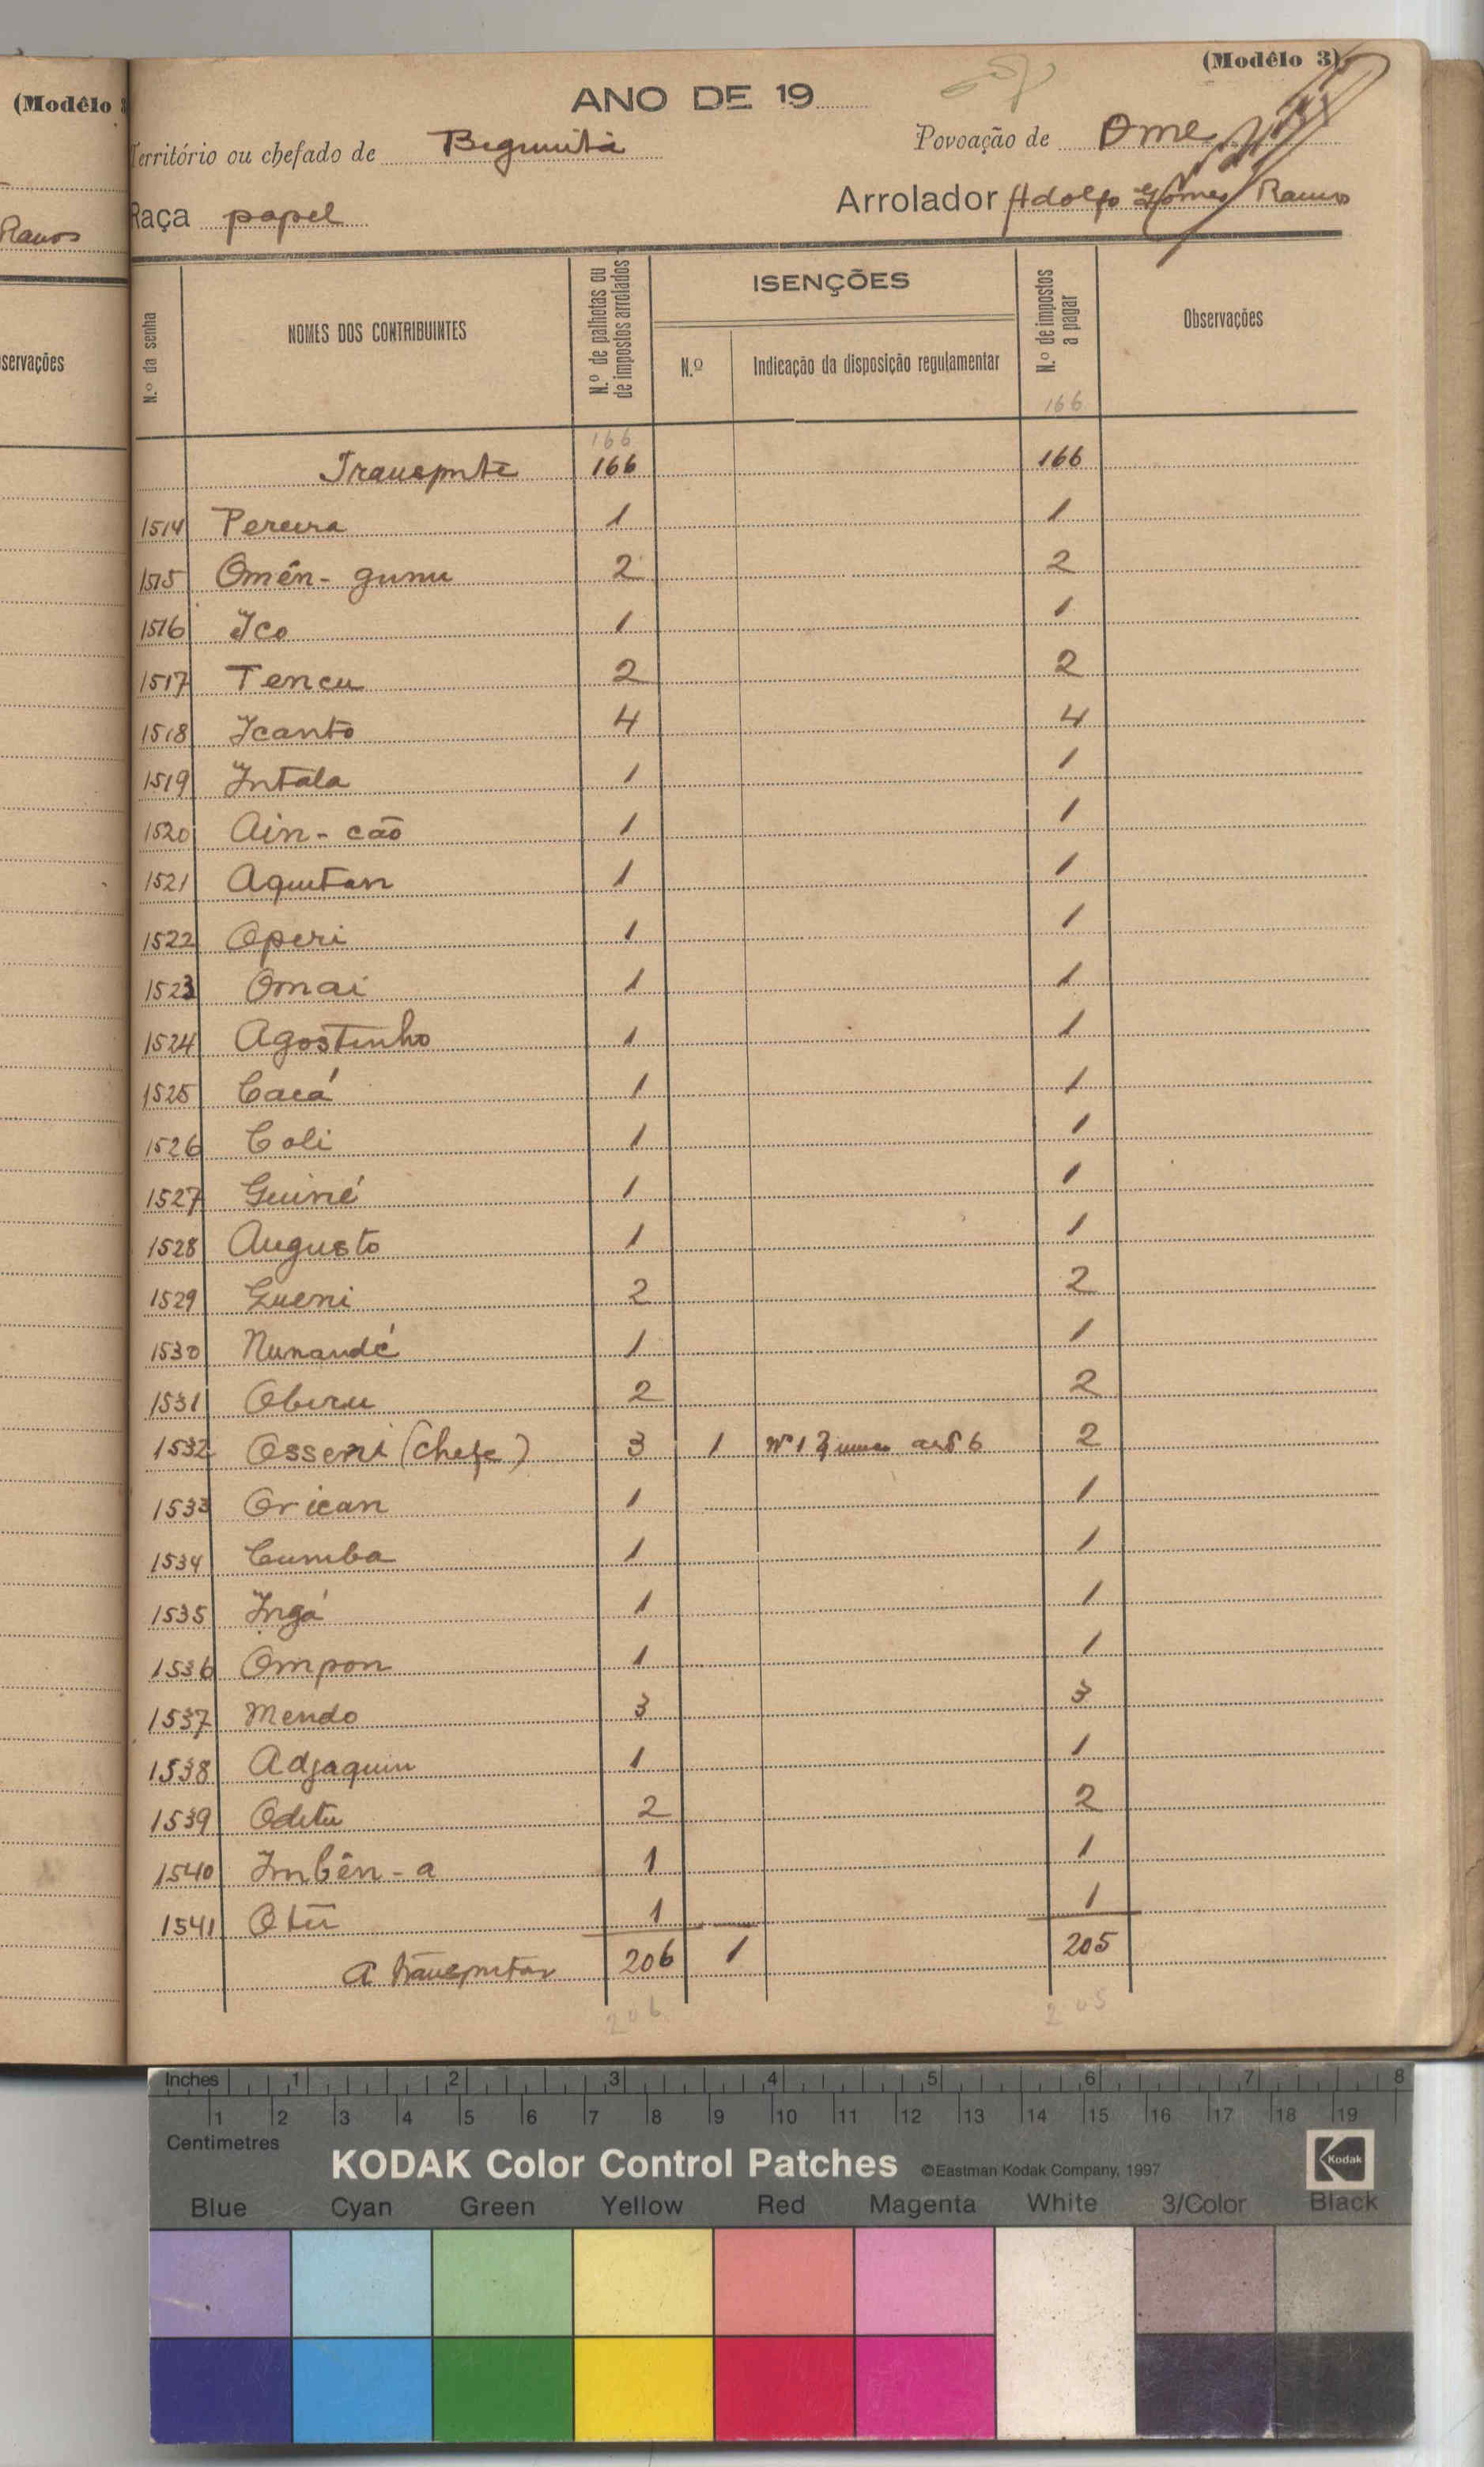 (Modêlo 3)
ANO DE 19
Território ou chefado de Bigimita
Povoação de Ome
Raça papel
Arrolador Adolfo Gomes Ramos
N.º da senha
NOMES DOS CONTRIBUINTES
N.º de palhotas ou de impostos arrolados
ISENÇÕES
N.º
Indicação da disposição regulamentar
N.º de impostos a pagar
Observações
166
166
Transporte 166 166
1514 Pereira 1 1
1515 Omên-gunu 2 2
1516 Ico 1 1
1517 Tencu 2 2
1518 Icanto 4 4
1519 Intala 1 1
1520 Ain-cão 1 1
1521 Aquitan 1 1
1522 Operi 1 1
1523 Omai 1 1
1524 Agostinho 1 1
1525 Cacá 1 1
1526 Coli 1 1
1527 Guiné 1 1
1528 Augusto 1 1
1529 Gueni 2 2
1530 Nunandé 1 1
1531 Obiru 2 2
1532 Osseni (chefe) 3 1 Nº 1 6 2
1533 Orican 1 1
1534 Cumba 1 1
1535 Ingá 1 1
1536 Ompon 1 1
1537 Mendo 3 3
1538 Adjaquin 1 1
1539 Oditu 2 2
1540 Imbên-a 1 1
1541 Otù 1 1
A transportar 206 1 205
206 205
(Modêlo
Ramos
servações
Inches 1 2 3 4 5 6 7 8
1 2 3 4 5 6 7 8 9 10 11 12 13 14 15 16 17 18 19
Centimetres
KODAK Color Control Patches ©Eastman Kodak Company, 1997
Kodak
Blue Cyan Green Yellow Red Magenta White 3/Color Black